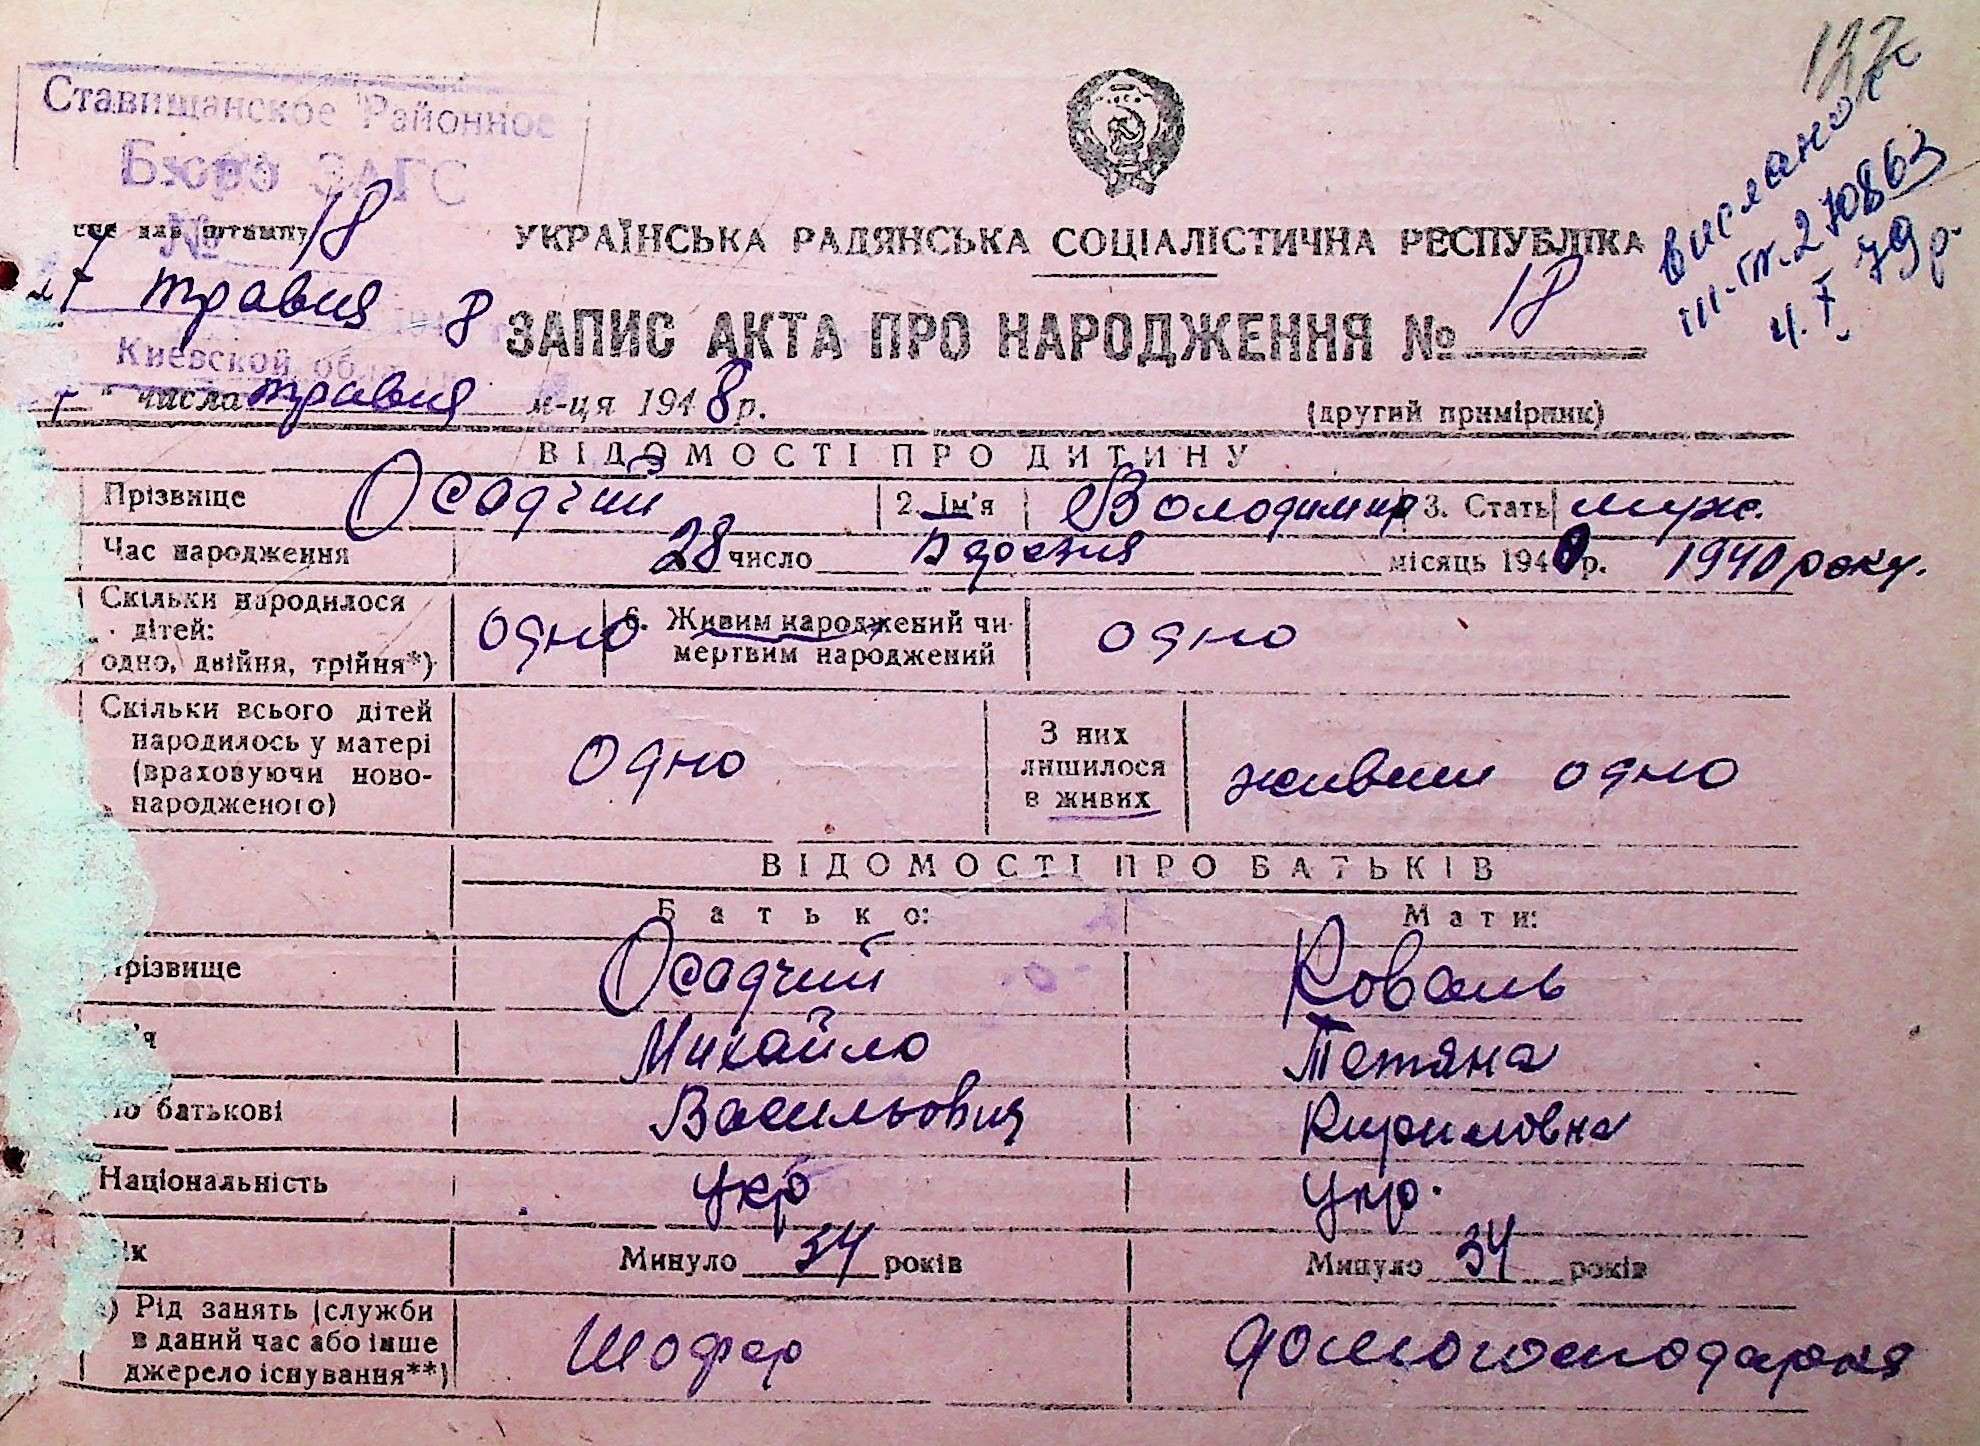 127
Ставищанское Районное
Бюро ЗАГС
№ 18
для штампу
УКРАЇНСЬКА РАДЯНСЬКА СОЦІАЛІСТИЧНА РЕСПУБЛІКА
травня 8
Киевской
ЗАПИС АКТА ПРО НАРОДЖЕННЯ № 18
числа травня м-ця 1948 р.
(другий примірник)
270863
79 р.
ВІДОМОСТІ ПРО ДИТИНУ
Прізвище Осадчий 2. Ім'я Володимир 3. Стать муж.
Час народження 28 число Вересня місяць 1940 р. 1940 року.
Скільки народилося дітей: одно, двійня, трійня*) одно 6. Живим народжений чи мертвим народжений одно
Скільки всього дітей народилось у матері (враховуючи новонародженого) одно З них лишилося в живих живими одно
ВІДОМОСТІ ПРО БАТЬКІВ
Батько: Мати:
Прізвище Осадчий Коваль
Михайло Тетяна
по батькові Васильович Кириловна
Національність укр укр.
Минуло 34 років Минуло 34 років
Рід занять (служби в даний час або інше джерело існування**) Шофер домогосподарка